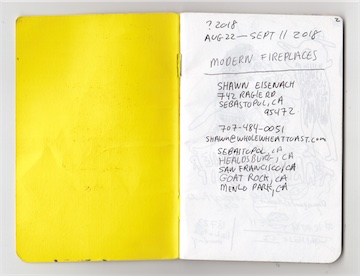 2
? 2018
AUG 22 — SEPT 11 2018
MODERN FIREPLACES
SHAWN EISENACH
742 RAGLE RD
SEBASTOPOL, CA
95472
707-484-0051
SHAWN@WHOLEWHEATTOAST.COM
SEBASTOPOL, CA
HEALDSBURG, CA
SAN FRANCISCO, CA
GOAT ROCK, CA
MENLO PARK, CA